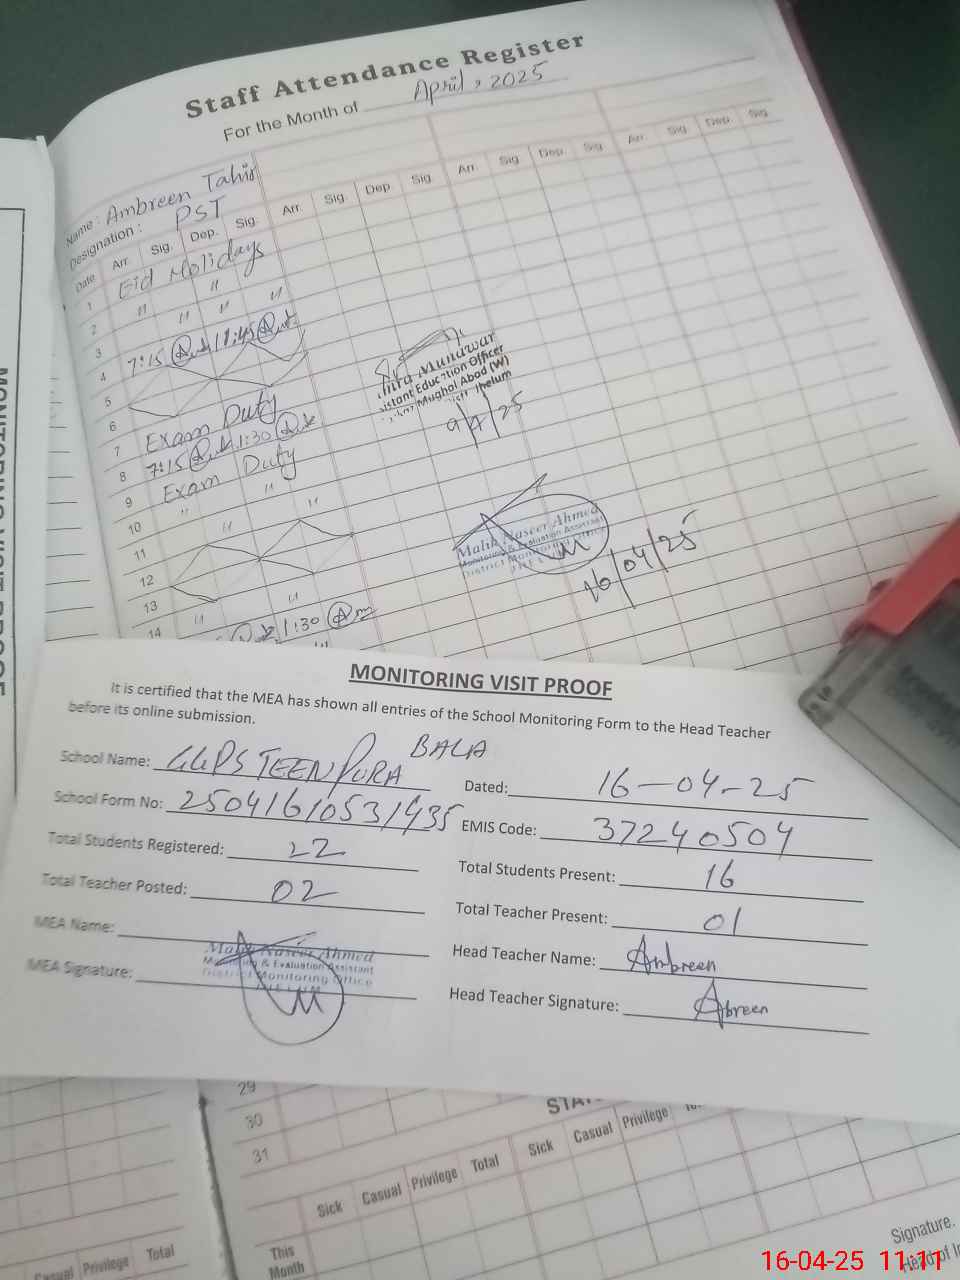 Staff Attendance Register
For the Month of April, 2025
Name: Ambreen Tahir
Designation: PST
Date Arr. Sig. Dep. Sig. Arr. Sig. Dep. Sig. Arr. Sig. Dep. Sig. Arr. Sig. Dep. Sig.
1 Eid Holidays
2 " "
3 " " "
4 7:15 11:45
5
6
7 Exam Duty
8 7:15 1:30
9 Exam Duty
10 " " "
11 "
12
13
14 " "
1:30
Munawar
istant Education Officer
Mughal Abad (W)
Jhelum
9/4/25
Malik Naseer Ahmed
Monitoring & Evaluation Assistant
District Monitoring Office
JHELUM
16/04/25
MONITORING VISIT PROOF
MONITORING VISIT PROOF
It is certified that the MEA has shown all entries of the School Monitoring Form to the Head Teacher
before its online submission.
School Name: GGPS TEEN PURA BALA
Dated: 16-04-25
School Form No: 25041610531435
EMIS Code: 37240504
Total Students Registered: 22
Total Students Present: 16
Total Teacher Posted: 02
Total Teacher Present: 01
MEA Name:
Head Teacher Name: Ambreen
MEA Signature:
Head Teacher Signature: Abreen
Malik Naseer Ahmed
Monitoring & Evaluation Assistant
District Monitoring Office
JHELUM
29
30
31
Sick Casual Privilege Total Sick Casual Privilege
This
Month
Casual Privilege Total
Signature.
Head of In
16-04-25 11:11